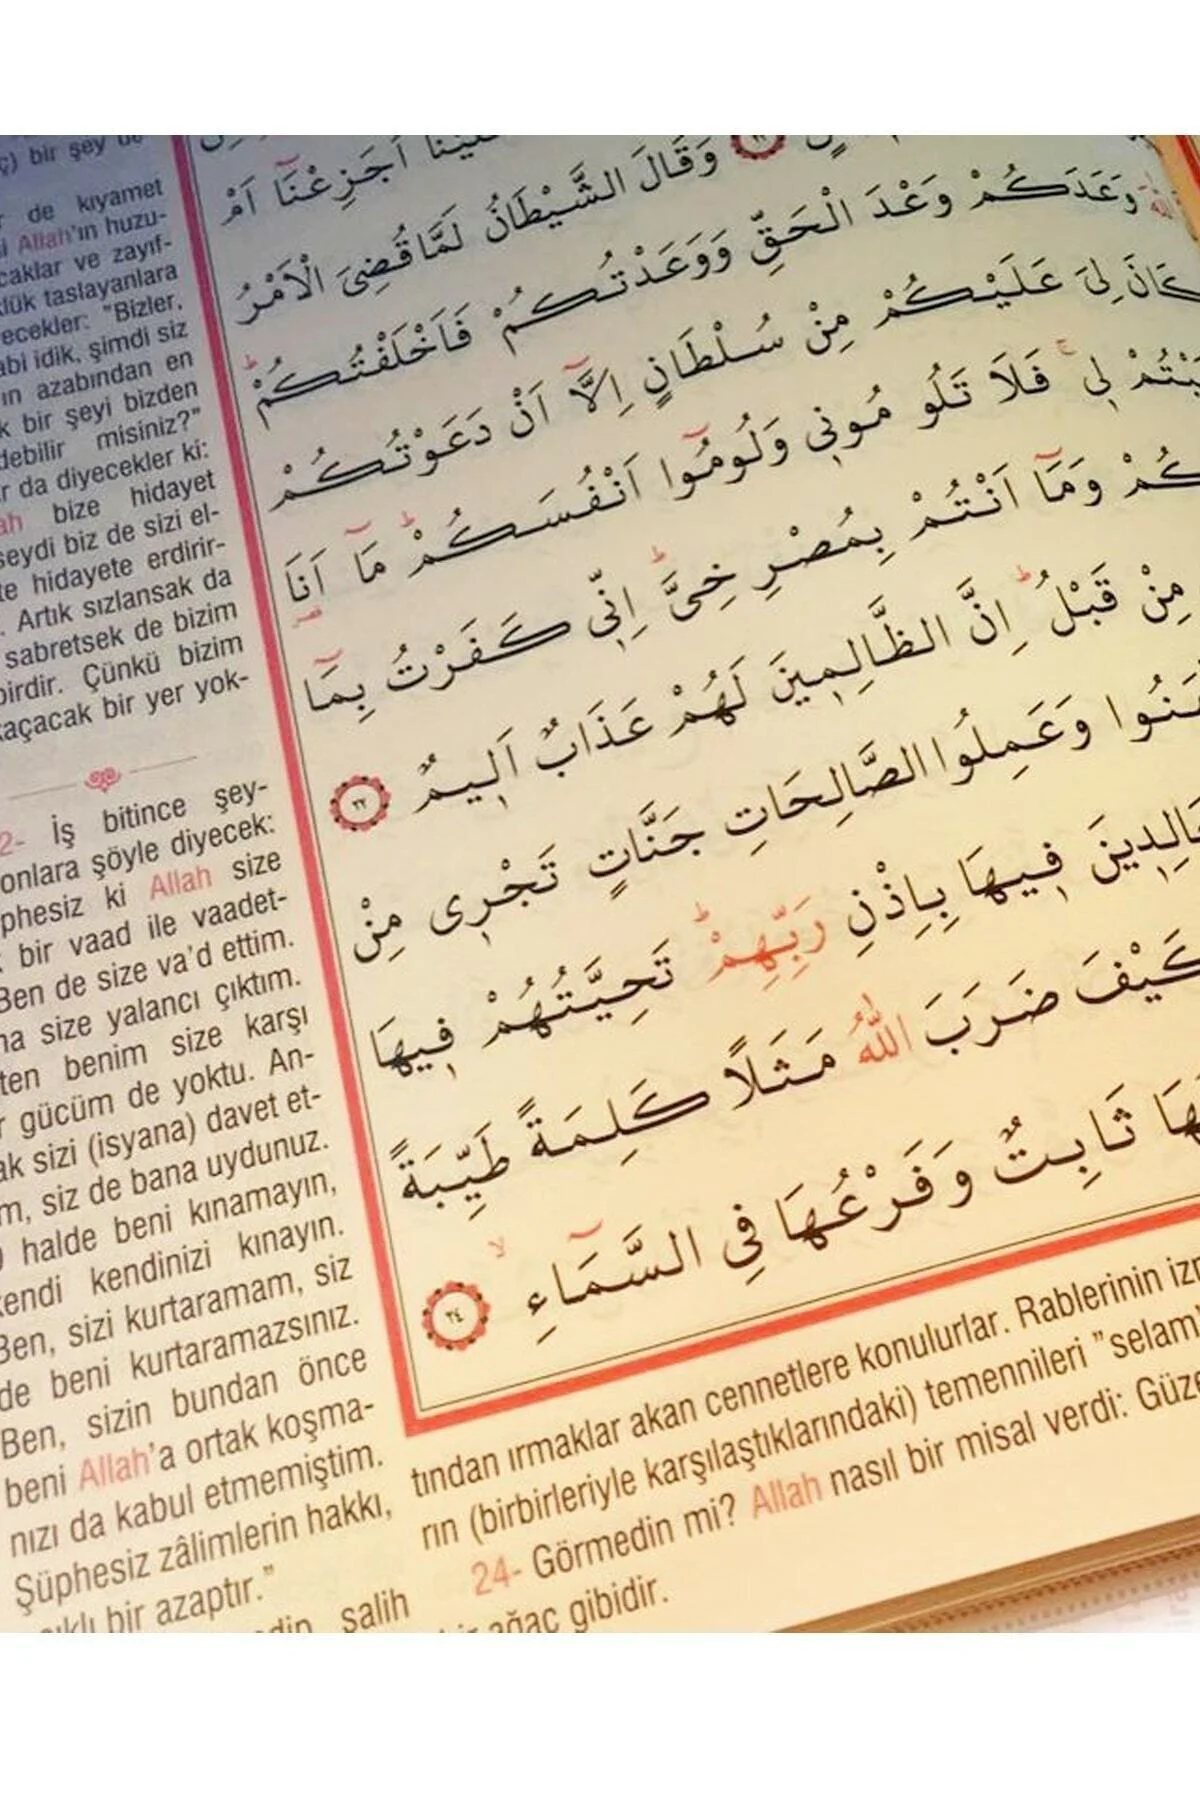 ç) bir şey
de kıyamet
Allah'ın huzu-
caklar ve zayıf-
klük taslayanlara
ecekler: "Bizler,
abi idik, şimdi siz
ın azabından en
k bir şeyi bizden
debilir misiniz?"
r da diyecekler ki:
ah bize hidayet
seydi biz de sizi el-
te hidayete erdirir-
. Artık sızlansak da
sabretsek de bizim
birdir. Çünkü bizim
kaçacak bir yer yok-
2- İş bitince şey-
onlara şöyle diyecek:
phesiz ki Allah size
bir vaad ile vaadet-
Ben de size va'd ettim.
ma size yalancı çıktım.
ten benim size karşı
r gücüm de yoktu. An-
ak sizi (isyana) davet et-
m, siz de bana uydunuz.
) halde beni kınamayın,
kendi kendinizi kınayın.
Ben, sizi kurtaramam, siz
de beni kurtaramazsınız.
Ben, sizin bundan önce
beni Allah'a ortak koşma-
nızı da kabul etmemiştim.
Şüphesiz zâlimlerin hakkı,
ıklı bir azaptır."
salih
اَجَزِعْنَٓا اَمْ
وَقَالَ الشَّيْطَانُ لَمَّا قُضِيَ الْاَمْرُ
وَعَدَكُمْ وَعْدَ الْحَقِّ وَوَعَدْتُكُمْ فَاَخْلَفْتُكُمْۜ
كَانَ لِيَ عَلَيْكُمْ مِنْ سُلْطَانٍ اِلَّٓا اَنْ دَعَوْتُكُمْ
لِيۚ فَلَا تَلُومُونِي وَلُومُٓوا اَنْفُسَكُمْۜ مَٓا اَنَا۬
كُمْ وَمَٓا اَنْتُمْ بِمُصْرِخِيَّۜ اِنِّي كَفَرْتُ بِمَٓا
مِنْ قَبْلُۜ اِنَّ الظَّالِمِينَ لَهُمْ عَذَابٌ اَلِيمٌ ٢٢
وَعَمِلُوا الصَّالِحَاتِ جَنَّاتٍ تَجْرِي مِنْ
فِيهَا بِاِذْنِ رَبِّهِمْۜ تَحِيَّتُهُمْ فِيهَا
كَيْفَ ضَرَبَ اللّٰهُ مَثَلًا كَلِمَةً طَيِّبَةً
ثَابِتٌ وَفَرْعُهَا فِي السَّمَٓاءِۙ ٢٤
tından ırmaklar akan cennetlere konulurlar. Rablerinin iz
rın (birbirleriyle karşılaştıklarındaki) temennileri "selam
24- Görmedin mi? Allah nasıl bir misal verdi: Güze
ağaç gibidir.